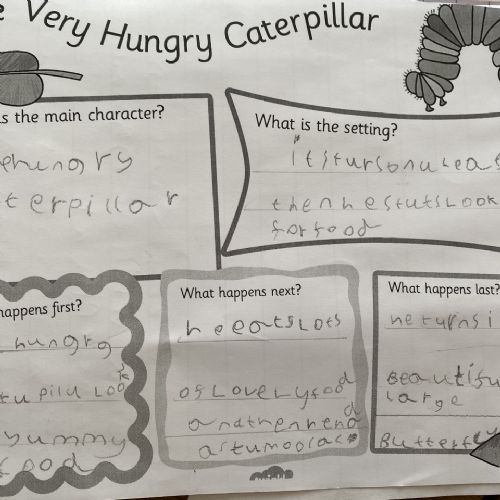 e Very Hungry Caterpillar
s the main character?
ehungry
terpillar
What is the setting?
itstursonulea
thenhestutsLook
forfood
happens first?
hungrg
tupilu Look
yummy
food
What happens next?
heeatsLots
ofLoveLyfood
andthenhehad
astumoolace
What happens last?
heturnsi
Beautifu
large
Butterfly